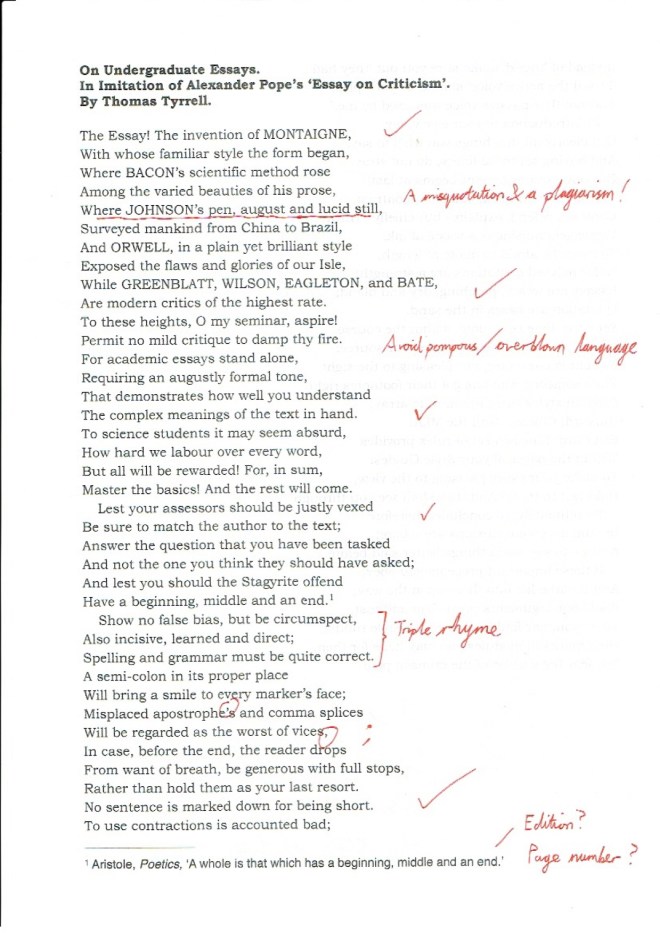 On Undergraduate Essays.
In Imitation of Alexander Pope's 'Essay on Criticism'.
By Thomas Tyrrell.
The Essay! The invention of MONTAIGNE,
With whose familiar style the form began,
Where BACON's scientific method rose
Among the varied beauties of his prose,
A misquotation & a plagiarism!
Where JOHNSON's pen, august and lucid still,
Surveyed mankind from China to Brazil,
And ORWELL, in a plain yet brilliant style
Exposed the flaws and glories of our Isle,
While GREENBLATT, WILSON, EAGLETON, and BATE,
Are modern critics of the highest rate.
To these heights, O my seminar, aspire!
Permit no mild critique to damp thy fire.
Avoid pompous/overblown language
For academic essays stand alone,
Requiring an augustly formal tone,
That demonstrates how well you understand
The complex meanings of the text in hand.
To science students it may seem absurd,
How hard we labour over every word,
But all will be rewarded! For, in sum,
Master the basics! And the rest will come.
Lest your assessors should be justly vexed
Be sure to match the author to the text;
Answer the question that you have been tasked
And not the one you think they should have asked;
And lest you should the Stagyrite offend
Have a beginning, middle and an end.¹
Show no false bias, but be circumspect,
Also incisive, learned and direct;
Triple rhyme
Spelling and grammar must be quite correct.
A semi-colon in its proper place
Will bring a smile to every marker's face;
Misplaced apostrophe's and comma splices
Will be regarded as the worst of vices, ;
In case, before the end, the reader drops
From want of breath, be generous with full stops,
Rather than hold them as your last resort.
No sentence is marked down for being short.
To use contractions is accounted bad;
Edition?
Page number?
¹ Aristole, Poetics, 'A whole is that which has a beginning, middle and an end.'